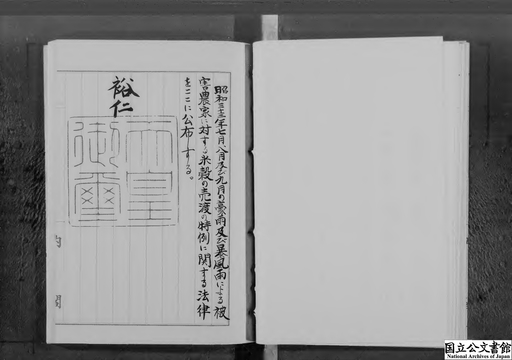 昭和三十三年七月、八月及び九月の豪雨及び暴風雨による被
害農家に対する米穀の売渡の特例に関する法律
をここに公布する。
裕仁
天皇
御璽
国立公文書館
National Archives of Japan